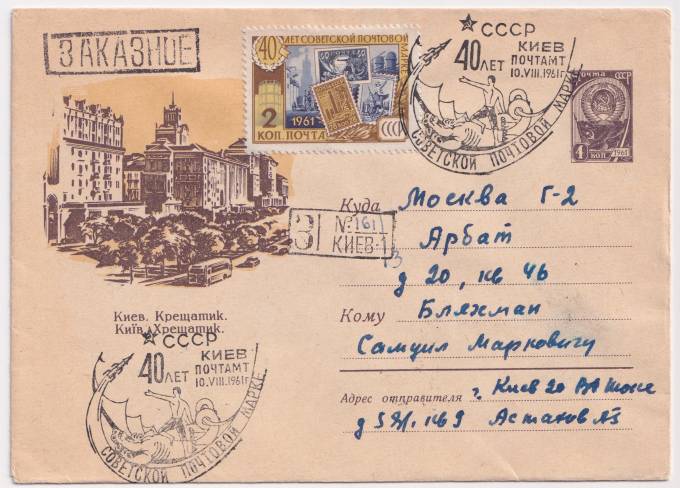 ЗАКАЗНОЕ
40 ЛЕТ СОВЕТСКОЙ ПОЧТОВОЙ МАРКЕ
1961
2 КОП. ПОЧТА СССР
СССР
40 ЛЕТ
КИЕВ
ПОЧТАМТ
10.VIII.1961г
СОВЕТСКОЙ ПОЧТОВОЙ МАРКЕ
ПОЧТА СССР
4 КОП 1961
Куда Москва Г-2
Арбат
д 20, кв 46
З №1611
КИЕВ-1
Кому Бляхман
Самуил Маркович
Киев. Крещатик.
Київ. Хрещатик.
СССР
40 ЛЕТ
КИЕВ
ПОЧТАМТ
10.VIII.1961г
СОВЕТСКОЙ ПОЧТОВОЙ МАРКЕ
Адрес отправителя г. Киев 20